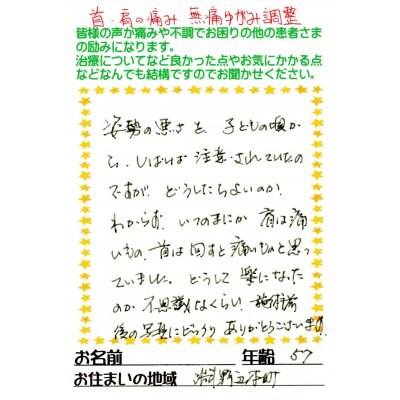 首・肩の痛み 無痛ゆがみ調整
皆様の声が痛みや不調でお困りの他の患者さま
の励みになります。
治療についてなど良かった点やお気にかかる点
などなんでも結構ですのでお聞かせください。
姿勢の悪さを、子どもの頃か
ら、しばしば注意されていたの
ですが、どうしたらよいのか、
わからず、いつのまにか肩は痛
いもの、首は回すと痛いものと思っ
ていました。どうして楽になった
のか不思議なくらい、施術前
後の写真にびっくり ありがとうございます。
お名前 年齢 57
お住まいの地域